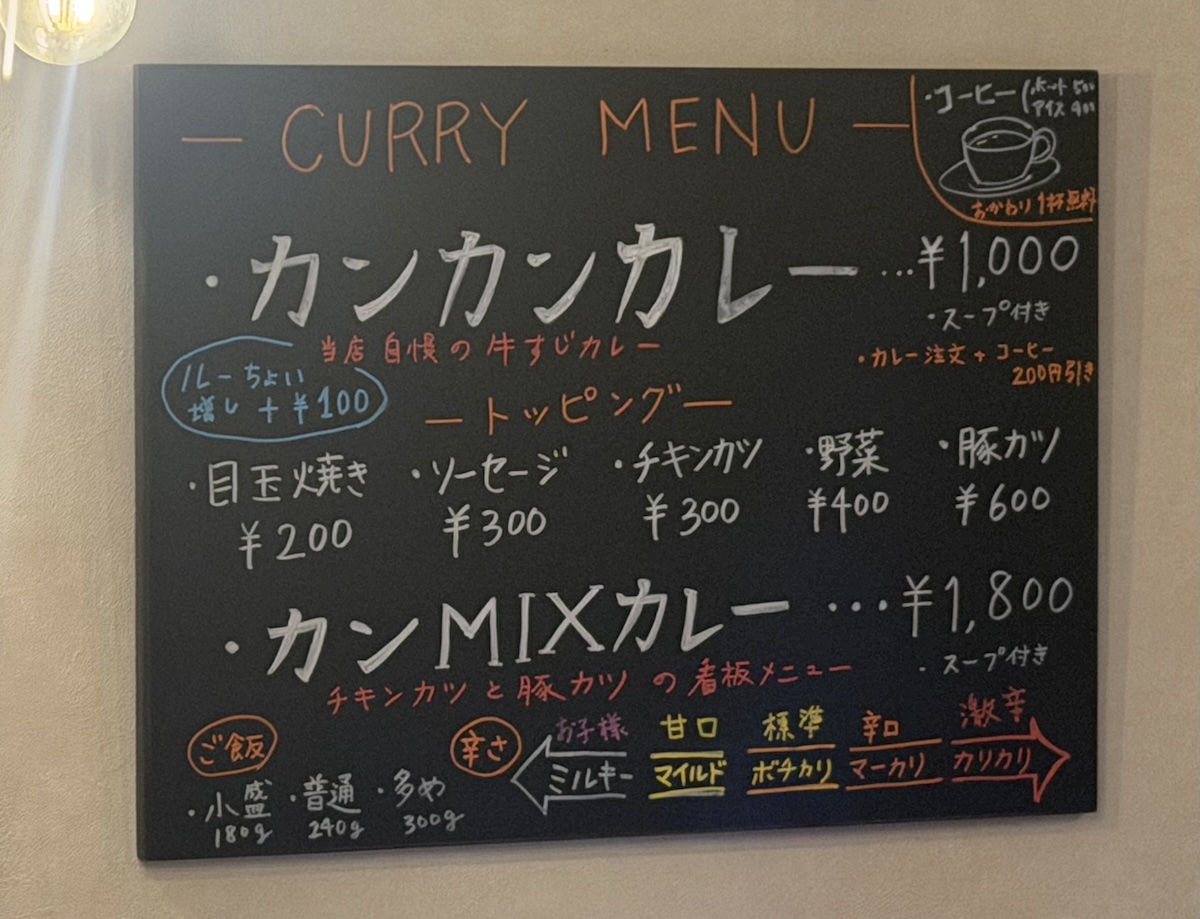 — CURRY MENU —
・コーヒー(ホット 500
アイス 400
おかわり1杯無料
・カンカンカレー…¥1,000
・スープ付き
当店自慢の牛すじカレー
・カレー注文+コーヒー
200円引き
ルーちょい
増し+¥100
—トッピング—
・目玉焼き ・ソーセージ ・チキンカツ ・野菜 ・豚カツ
¥200 ¥300 ¥300 ¥400 ¥600
・カンMIXカレー…¥1,800
・スープ付き
チキンカツと豚カツの看板メニュー
ご飯
・小盛 ・普通 ・多め
180g 240g 300g
辛さ
お子様 甘口 標準 辛口 激辛
ミルキー マイルド ボチカリ マーカリ カリカリ